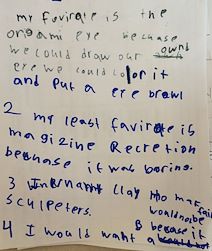 my favirate is the
origami eye becuase
we could draw our ownd
eye we could color it
and put a eye brawl
2 my least favirate is
magizine Recretion
becuase it was boring.
3 clay
sculpeters. would
because it
4 I would want a